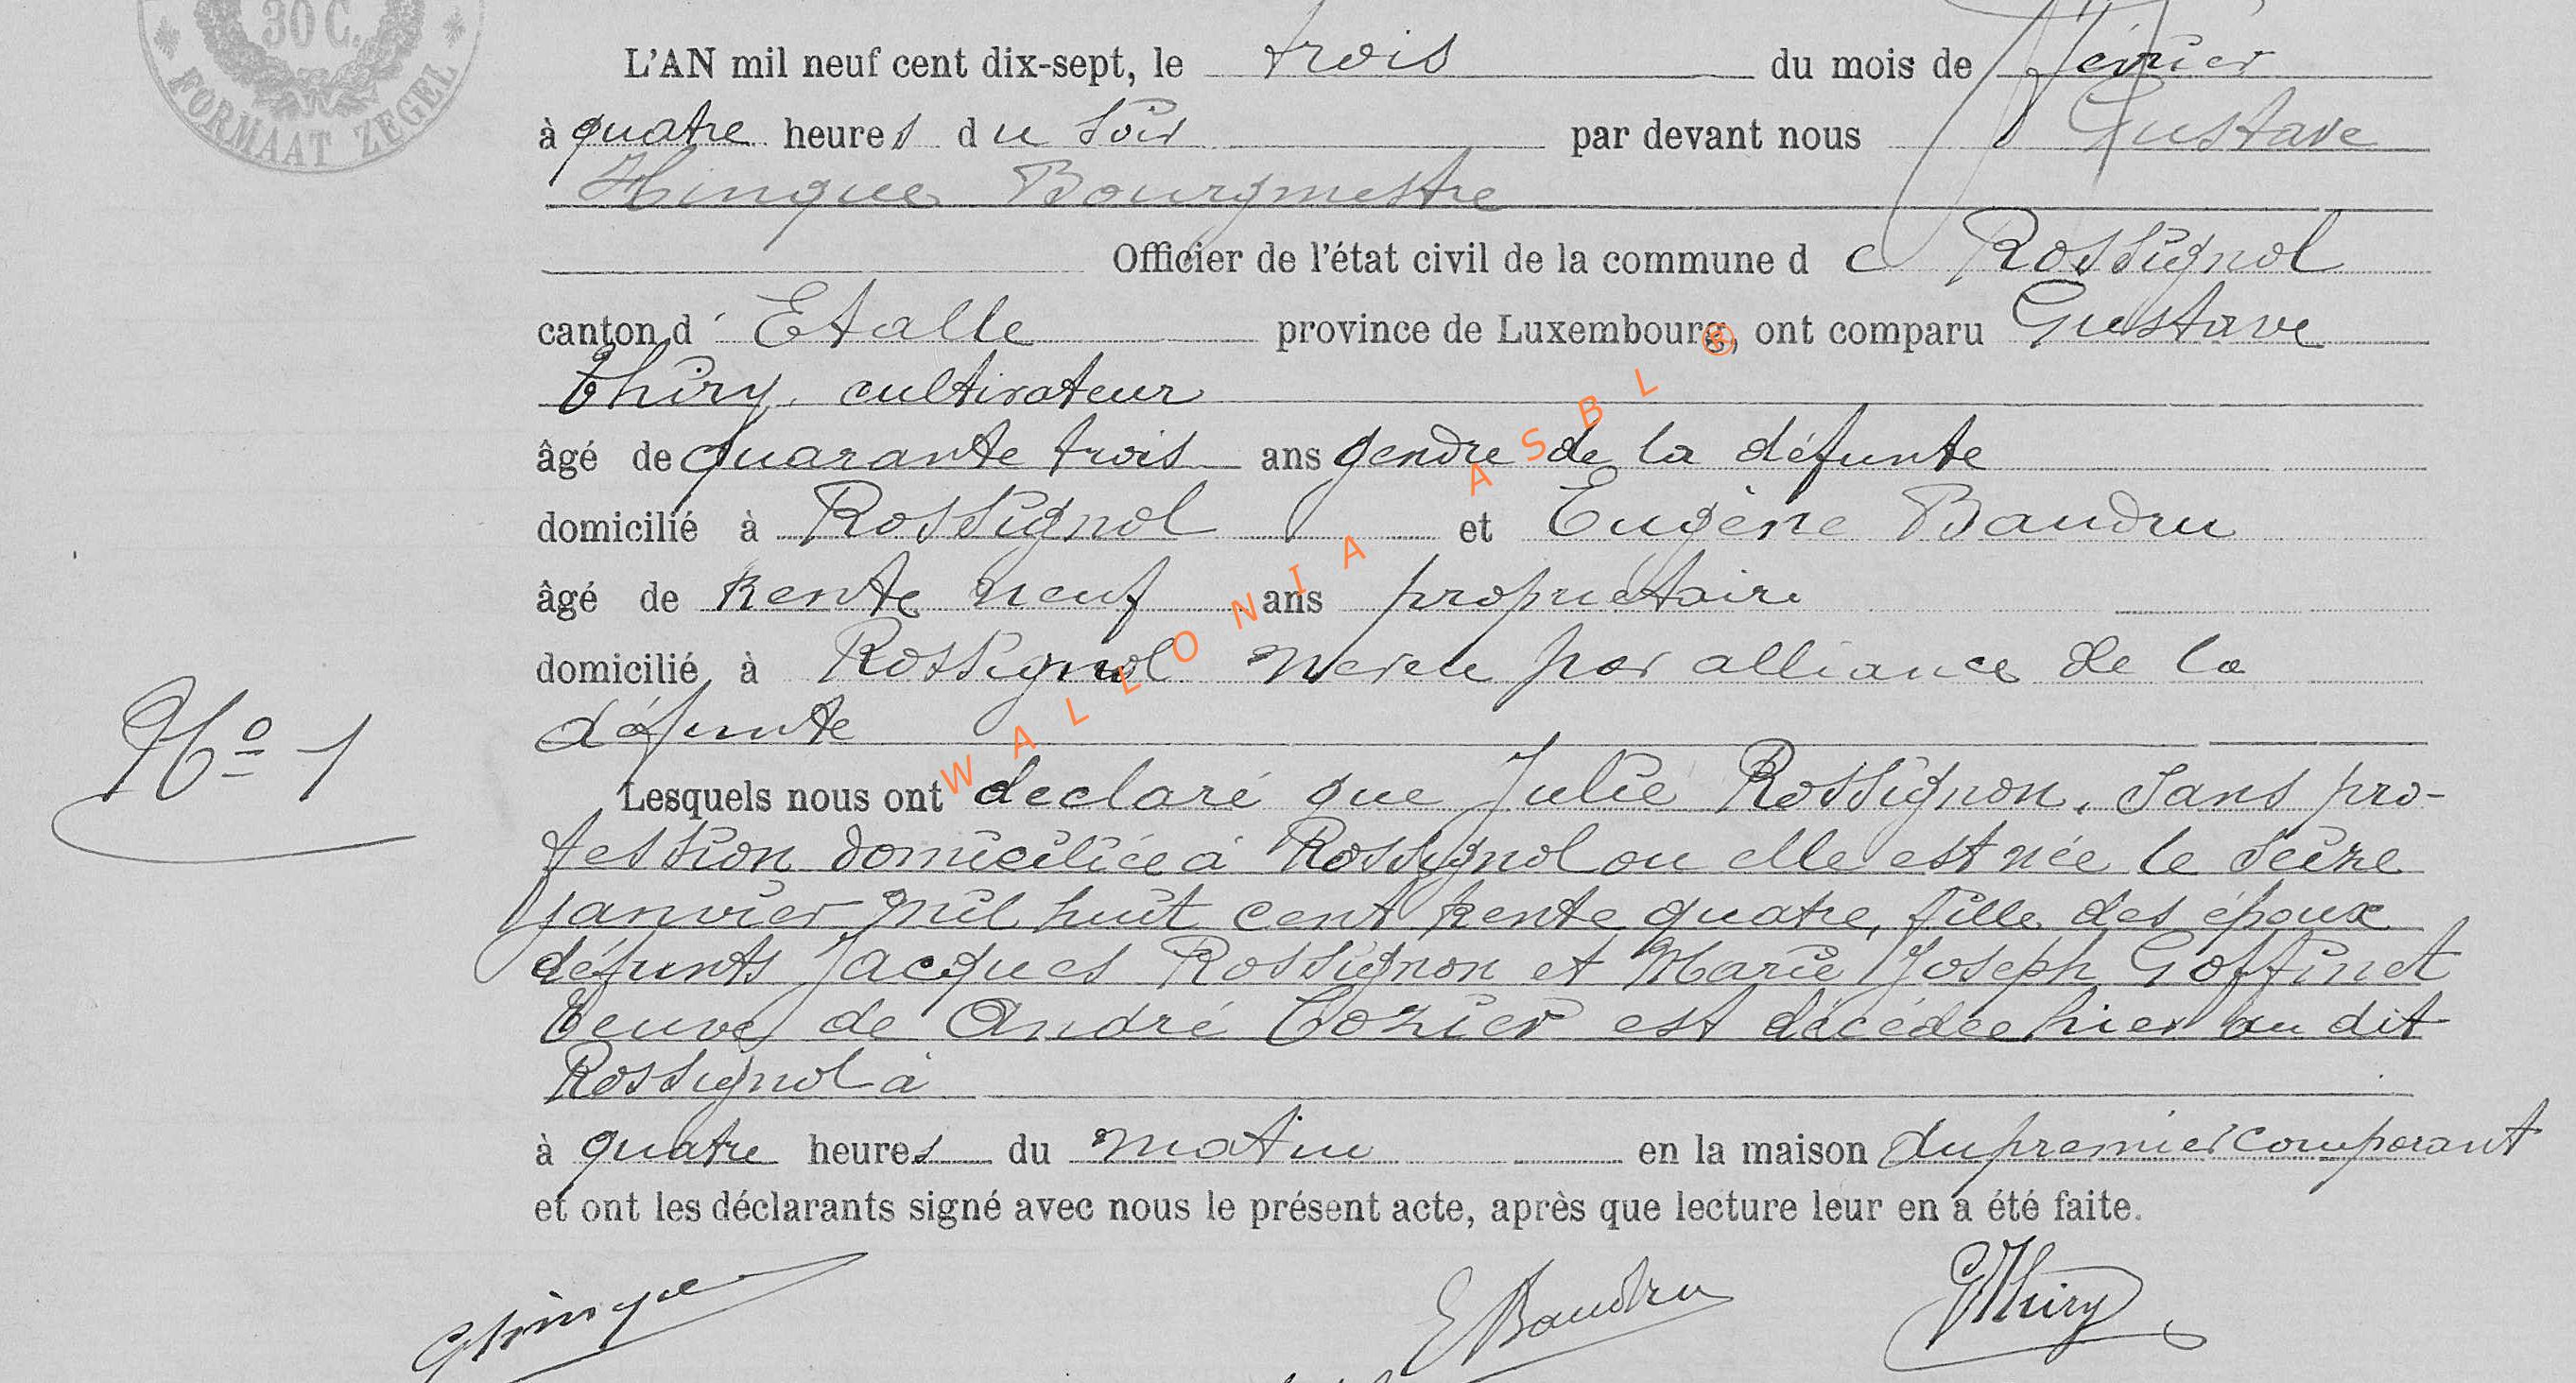 30 C.
FORMAAT ZEGEL
L'AN mil neuf cent dix-sept, le trois du mois de février
à quatre heures du soir par devant nous Gustave
Hinque Bourgmestre
Officier de l'état civil de la commune de Rossignol
canton d' Etalle province de Luxembourg, ont comparu Gustave
Thiry, cultivateur
âgé de quarante trois ans gendre de la défunte
domicilié à Rossignol et Eugène Baudru
âgé de trente neuf ans propriétaire
domicilié à Rossignol neveu par alliance de la
défunte
Nº 1
Lesquels nous ont declaré que Julie Rossignon, sans pro-
fession domiciliée à Rossignol ou elle est née le seize
janvier mil huit cent trente quatre, fille des époux
défunts Jacques Rossignon et Marie Joseph Goffinet
Veuve de André Cozier est décédée hier au dit
Rossignol à
à quatre heures du matin en la maison du premier comparant
et ont les déclarants signé avec nous le présent acte, après que lecture leur en a été faite.
GHinque E Baudru GThiry
WALLONIA ASBL ®